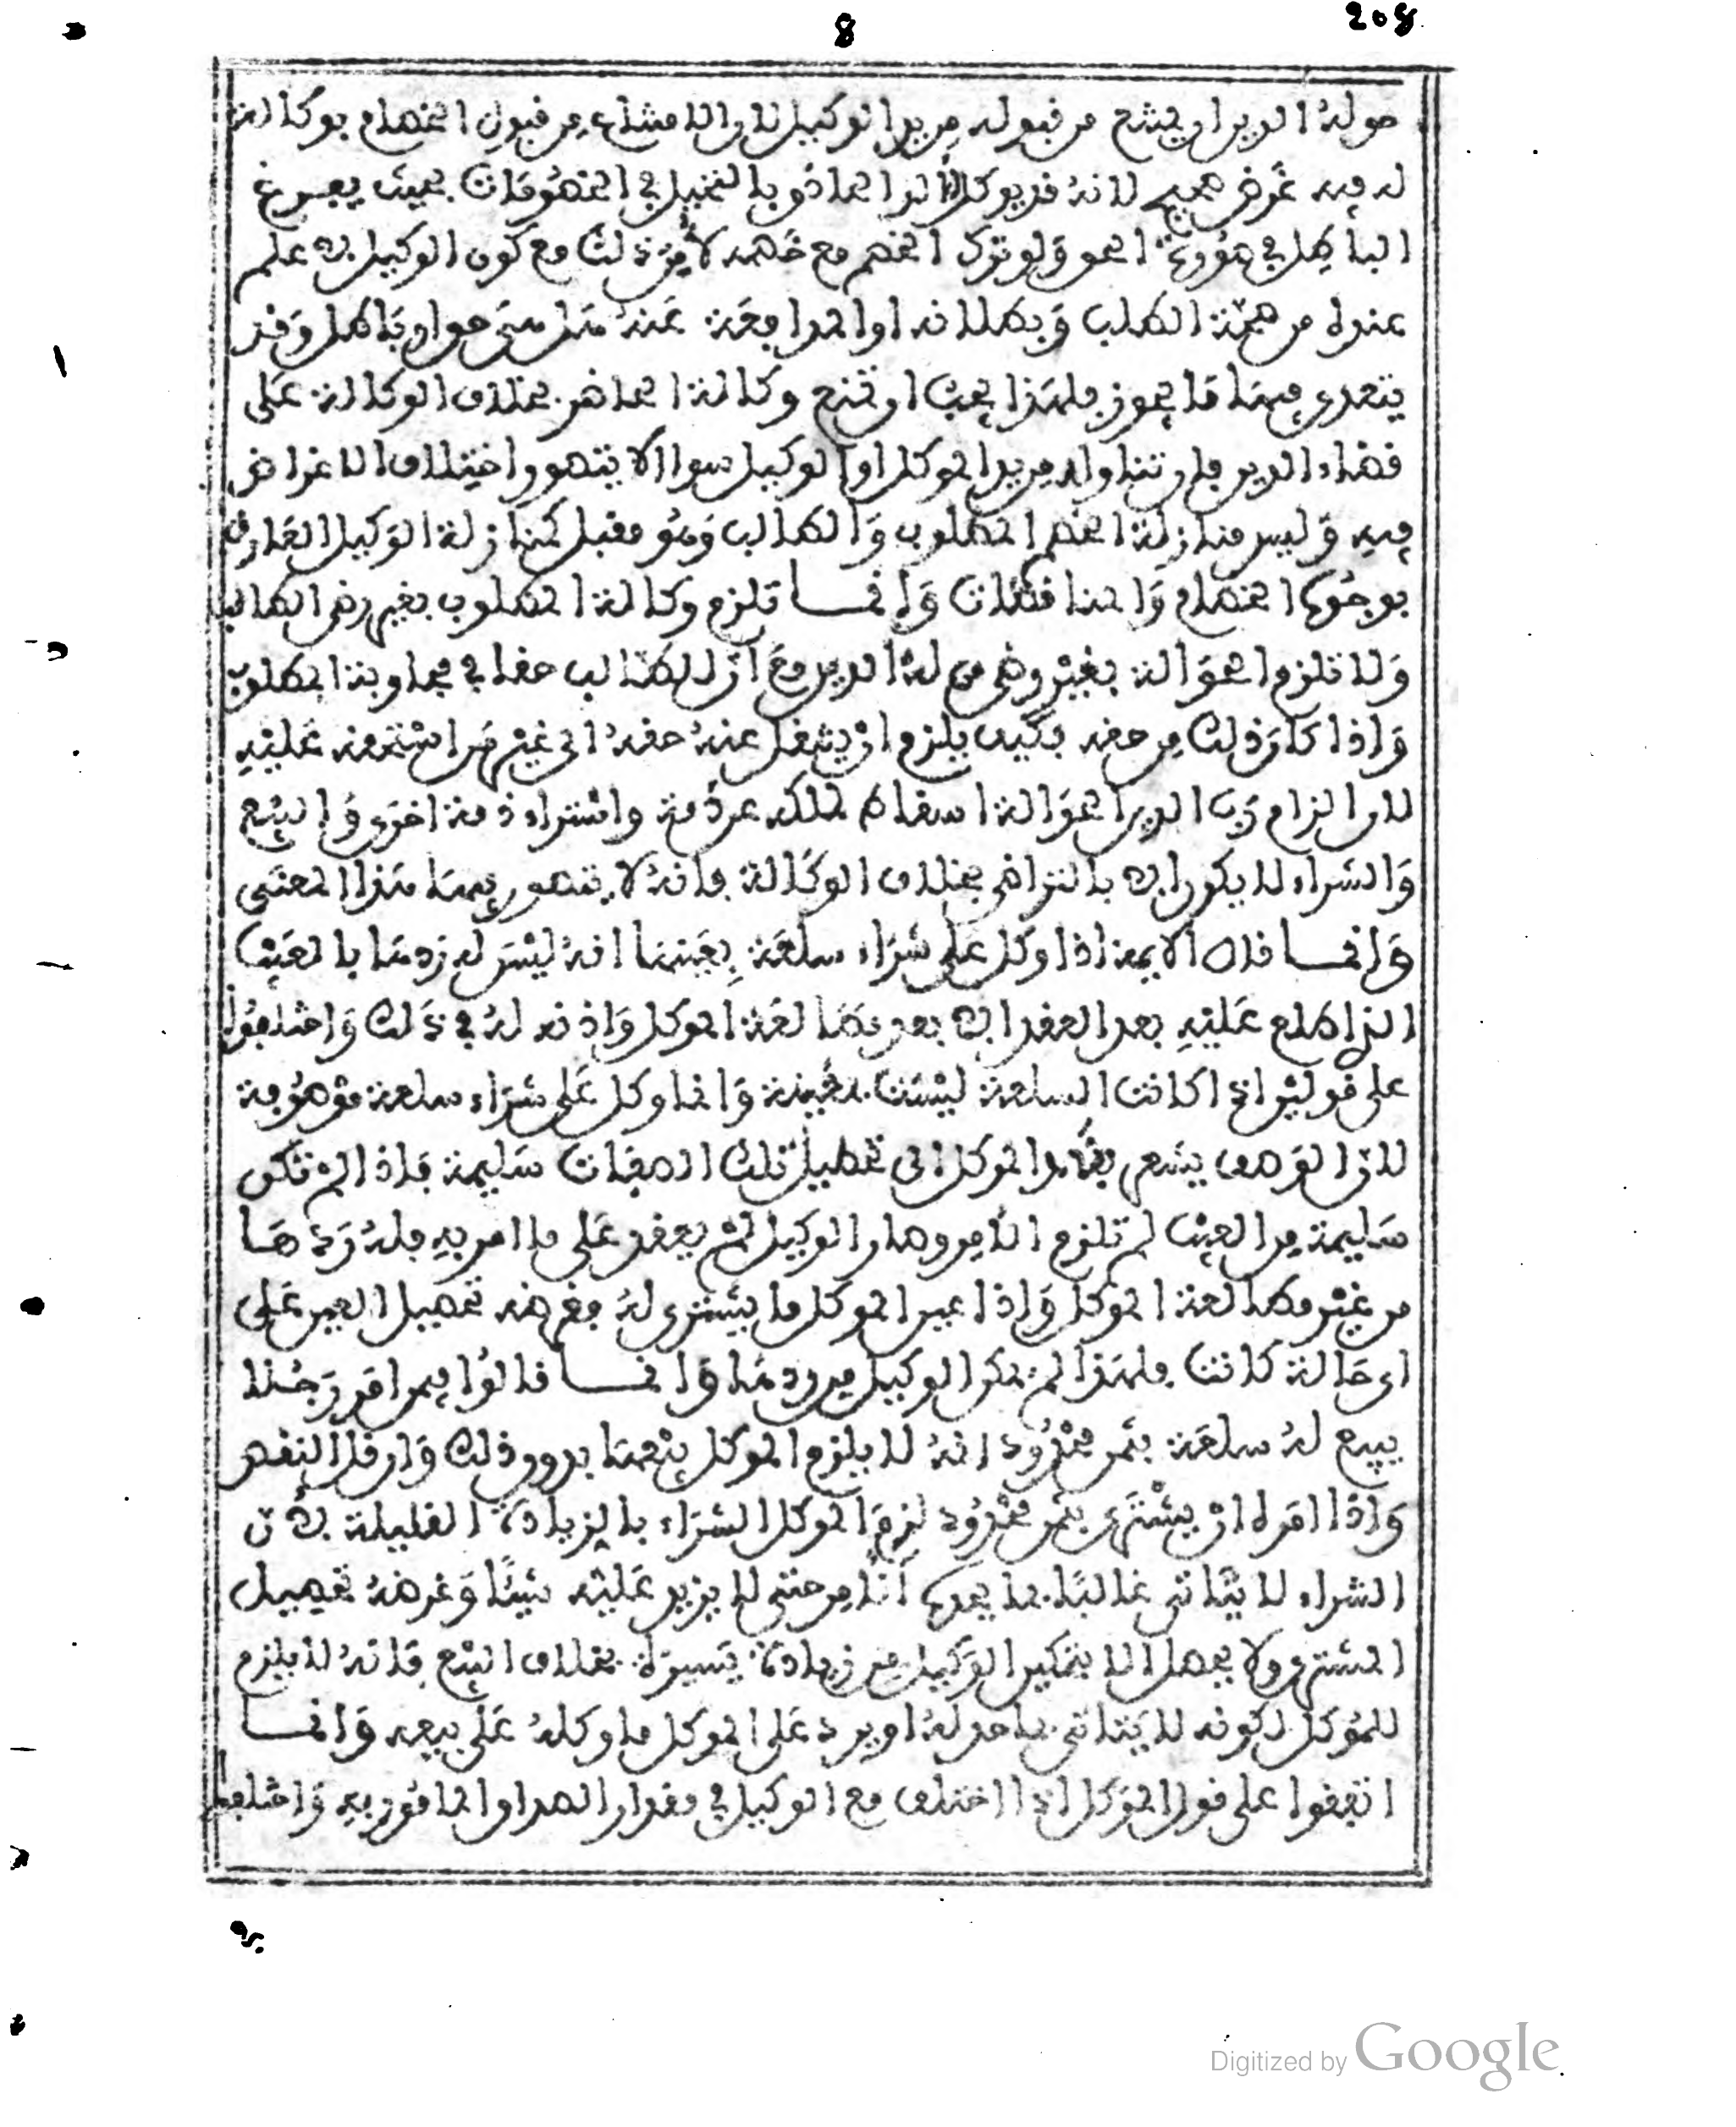 8
208
من له الدين ان يمتنع من قبوله من يد الوكيل لان الامتناع من قبول الخصام بوكالة
له فيه غرض صحيح لانه قد يوكل الالد الحاذق بالتخيل في الخصومات بحيث يفرغ
الباطل في صورة الحق ولو ترك الخصم مع خصمه لأمن ذلك مع كون الوكيل لا علم
عنده من صحة الطلب وبطلانه او المدافعة عنه هل هي حق او باطل وقد
يتعدى فيها ما يجوز فلهذا يجب ان تمنع وكالة الحاضر بخلاف الوكالة على
قضاء الدين فان تناوله من يد الموكل او الوكيل سوا لا يتصور اختلاف الاغراض
فيه وليس منازلة الخصم المطلوب والطالب وهو مغفل كمنازلة الوكيل العارف
بوجوه الخصام والمناقضات وانما تلزم وكالة المطلوب بغير رضى الطالب
ولا تلزم الحوالة بغير رضى من له الدين مع ان للطالب حقا في مجاوبة المطلوب
واذا كان ذلك من حقه فكيف يلزم ان ينتقل عنه حقه الى غير من استحقه عليه
لان الزام رب الدين الحوالة اسقاط لملكه عن ذمة واشتراء ذمة اخرى والبيع
والشراء لا يكون الا بالتراضي بخلاف الوكالة فانه لا يتصور فيها هذا المعنى
وانما قال الايمة اذا وكل على شراء سلعة بعينها انه ليس له ردها بالعيب
الذي اطلع عليه بعد العقد الا بعد مطالعة الموكل واذنه له في ذلك واختلفوا
على قولين اذا كانت السلعة ليست بعينة وانما وكل على شراء سلعة موصوفة
لان الوصف يشعر بقصد الموكل الى تحصيل تلك الصفات سليمة فاذا لم تكن
سليمة من العيب لم تلزم الآمر وصار الوكيل لم يعقد على ما امر به فله ردها
من غير مطالعة الموكل واذا عين الموكل ما يشترى له فغرضه تحصيل العين على
اي حالة كانت فلهذا لم يمكن الوكيل من ردها وانما قالوا فيمن امر رجلا
يبيع له سلعة بثمن محدود انه لا يلزم الموكل بيعها بدون ذلك وان قل النقص
واذا امره ان يشتري بثمن محدود لزم الموكل الشراء بالزيادة القليلة لأن
الشراء لا يتاتى غالبا بما يحده الآمر حتى لا يزيد عليه شيئا وغرضه تحصيل
المشترى ولا يحصل الا بتمكين الوكيل من زيادة يسيرة بخلاف البيع فانه لا يلزم
للموكل لكونه لا يتاتى بما حد له او يرد على الموكل ما وكله على بيعه وانما
اتفقوا على قول الموكل اذا اختلف مع الوكيل في مقدار الصداق المامور به واختلفوا
Digitized by Google